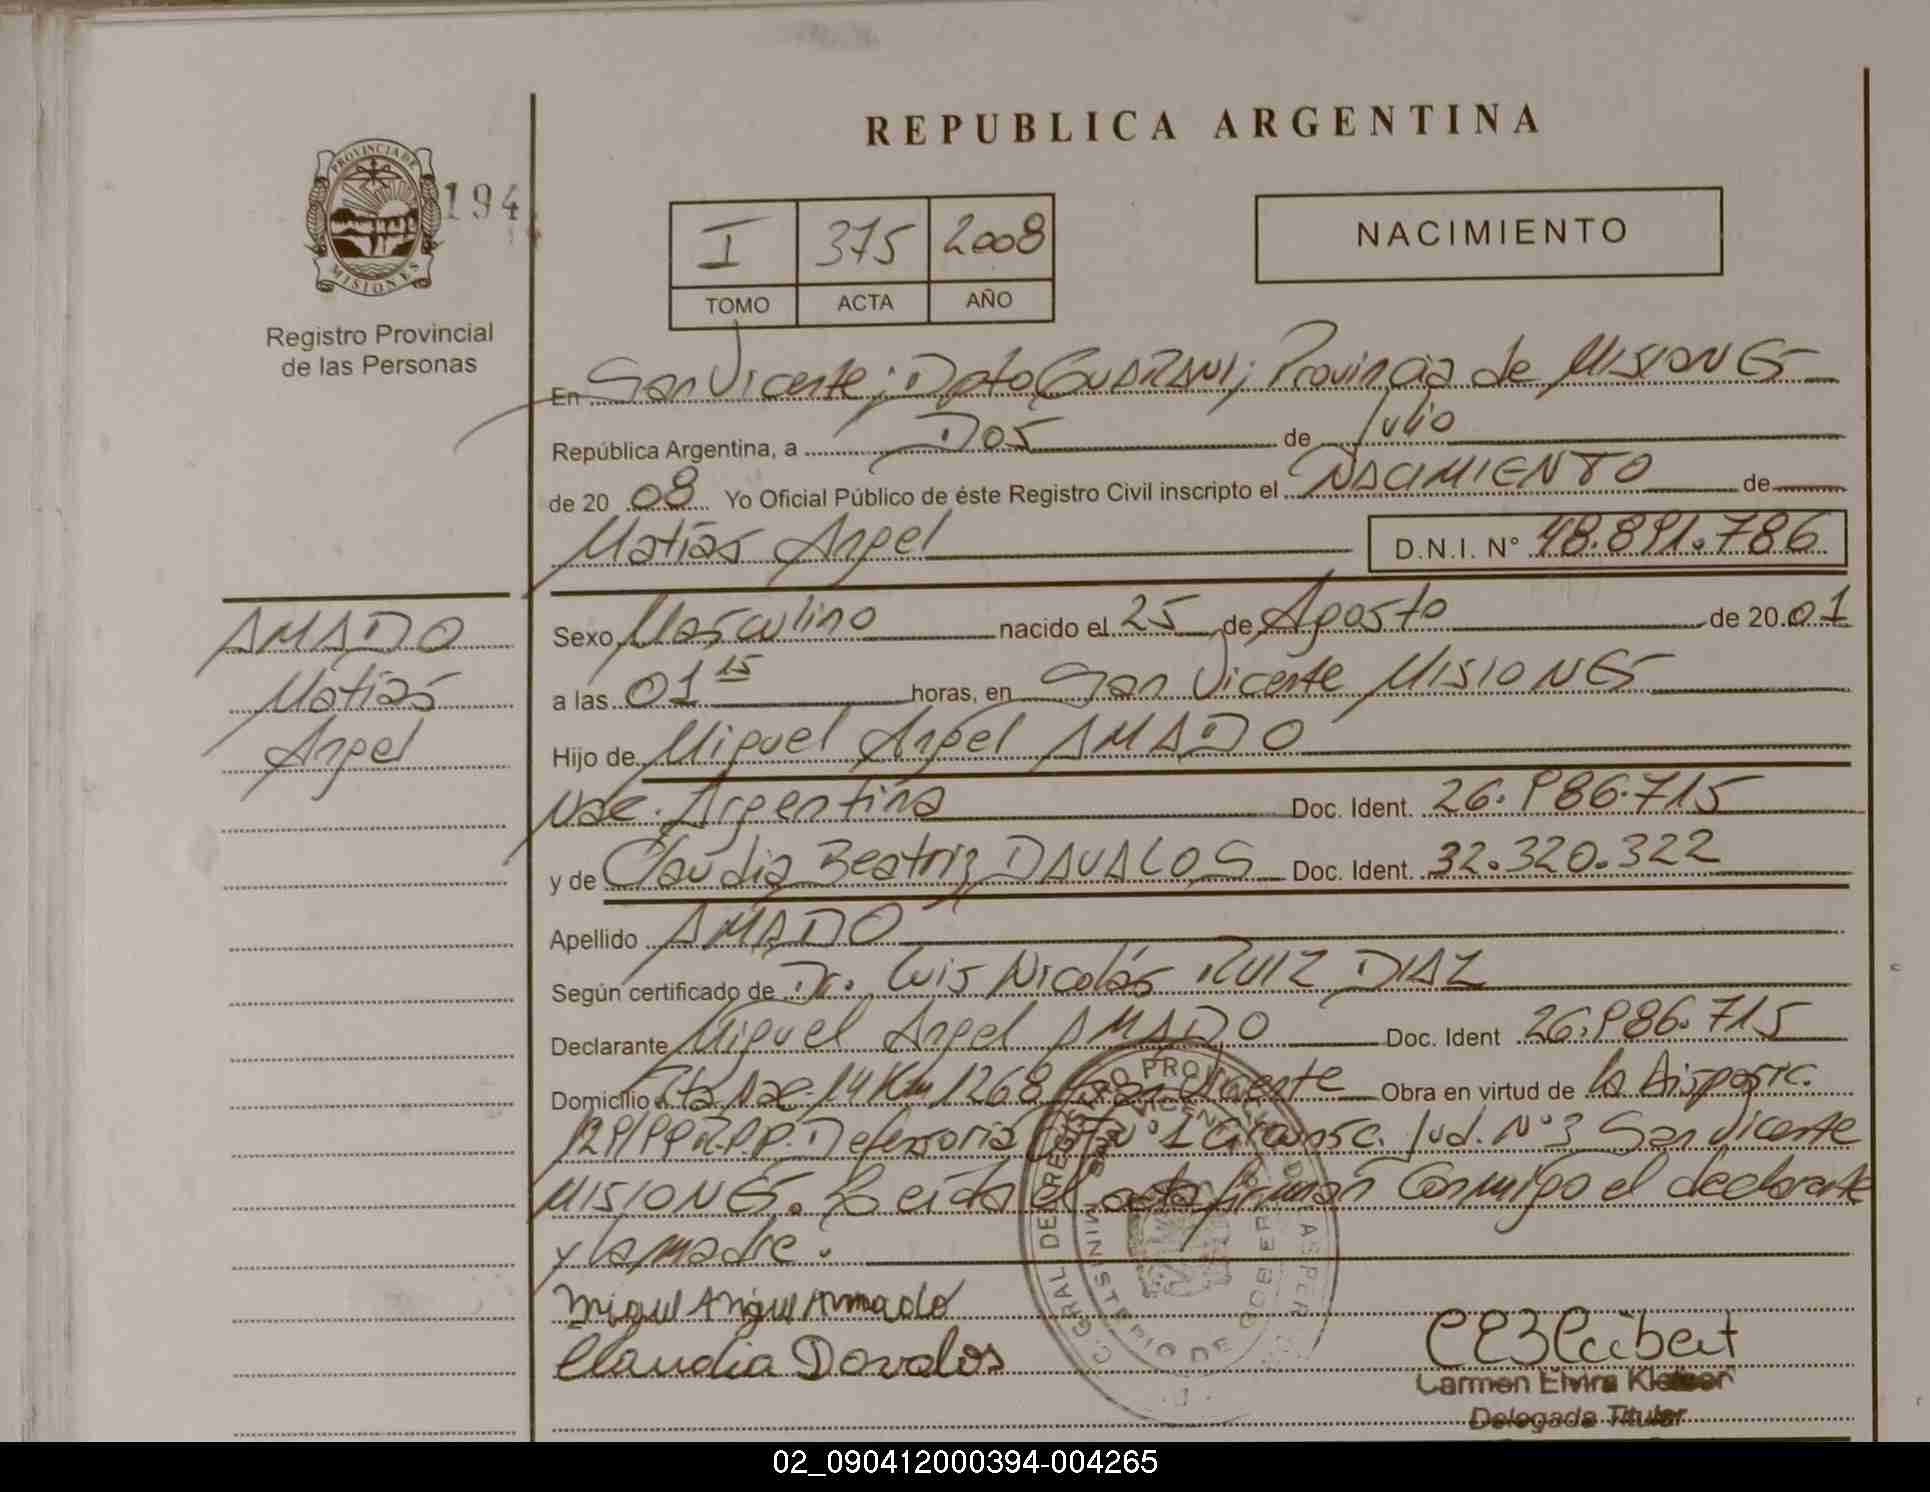 REPUBLICA ARGENTINA
PROVINCIA DE
MISIONES
194
Registro Provincial
de las Personas
I 375 2008
TOMO ACTA AÑO
NACIMIENTO
En San Vicente; Dpto GUARANI; Provincia de MISIONES
República Argentina, a Dos de Julio
de 20 08 Yo Oficial Público de éste Registro Civil inscripto el NACIMIENTO de
Matías Angel D.N.I. N° 48.891.786
AMADO
Matías
Angel
Sexo Masculino nacido el 25 de Agosto de 20 01
a las 01 15 horas, en San Vicente MISIONES
Hijo de Miguel Angel AMADO
Nac. Argentina Doc. Ident. 26.986.715
y de Claudia Beatriz DAVALOS Doc. Ident. 32.320.322
Apellido AMADO
Según certificado de Dr. Luis Nicolás RUIZ DIAZ
Declarante Miguel Angel AMADO Doc. Ident 26.986.715
Domicilio Rta Nac. 14 Km 1268 San Vicente Obra en virtud de la Disposic.
Defensoria N° 1 Circunsc. Jud. N° 3 San Vicente
MISIONES. Leída el acta firman conmigo el declarante
y la madre.
Miguel Angel Amado
Claudia Davalos
Carmen Elvira
Delegada Titular
02_090412000394-004265